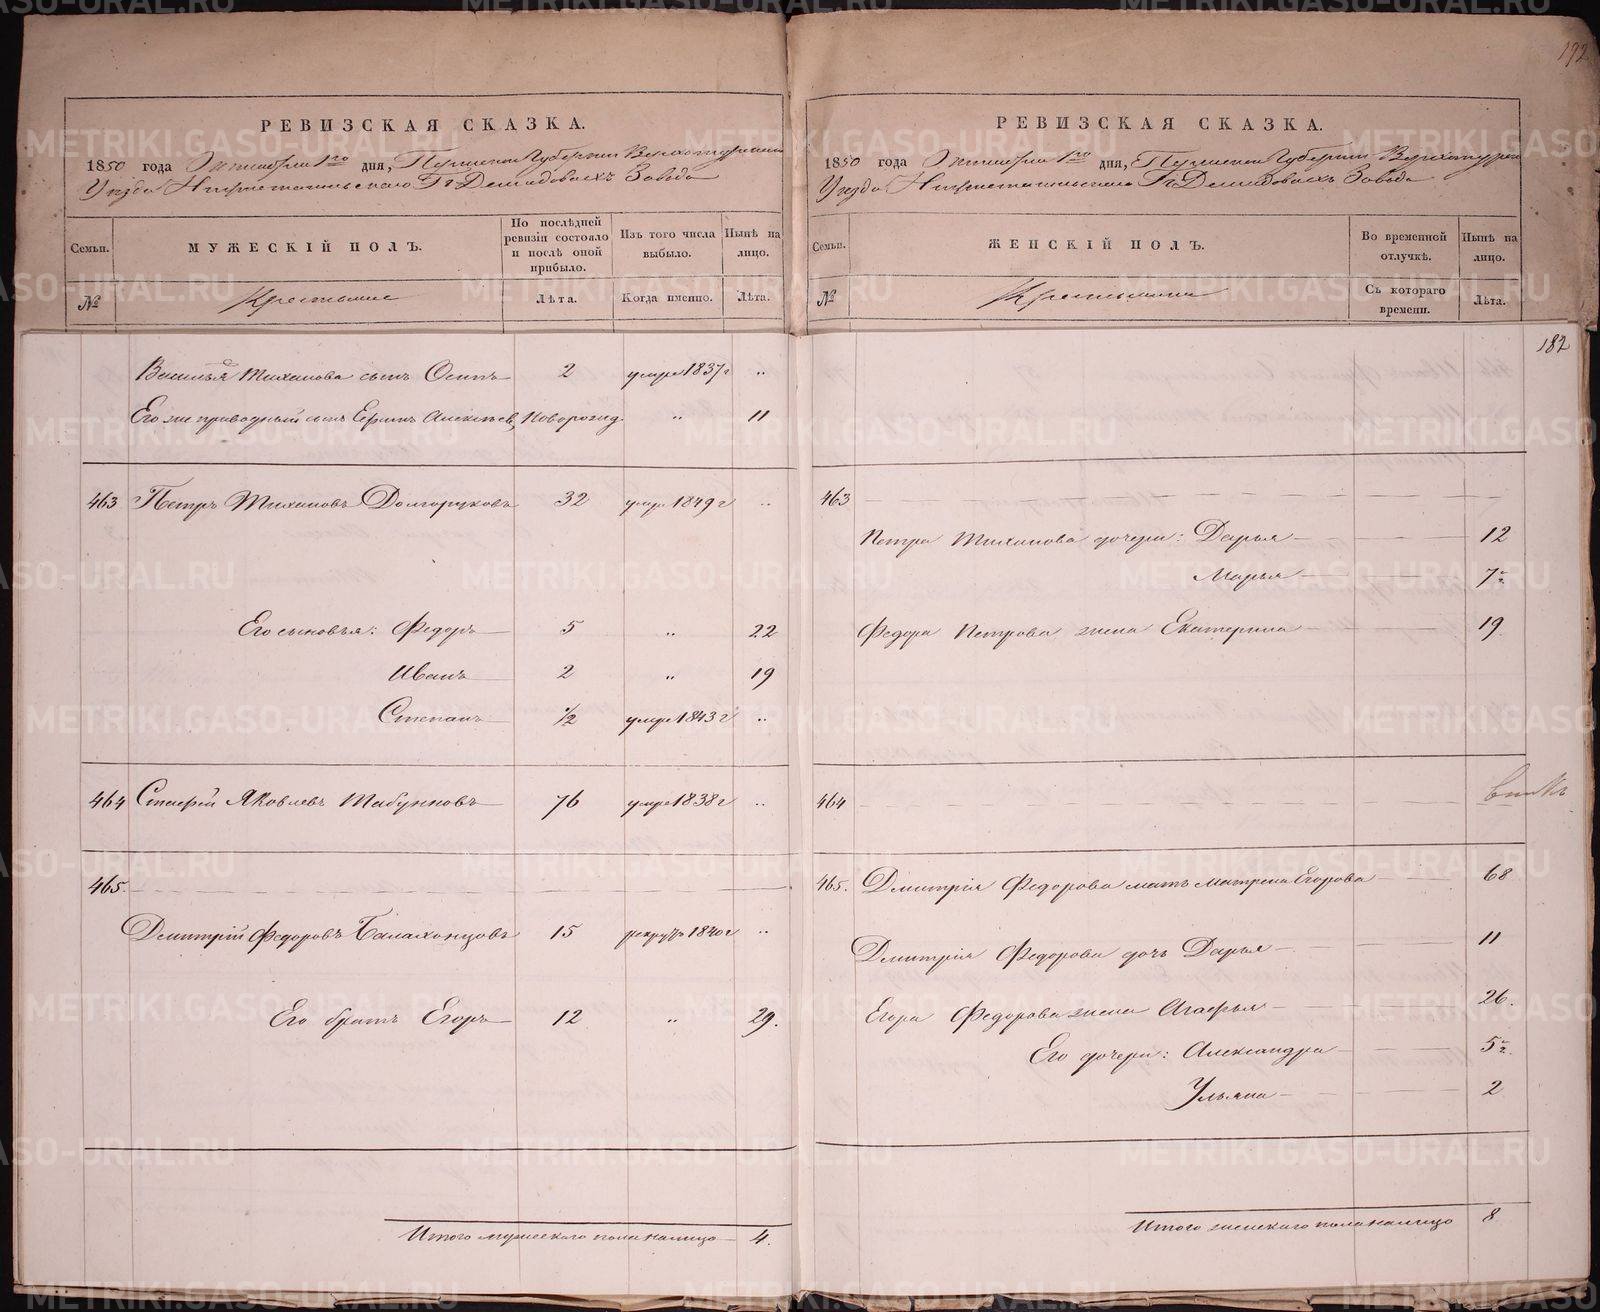 192
РЕВИЗСКАЯ СКАЗКА.
1850 года Октября 1го дня, Пермской Губернии Верхотурскаго
Уѣзда Нижнетагильскаго Гг. Демидовыхъ Завода
Семьи. МУЖЕСКІЙ ПОЛЪ. По послѣдней ревизіи состояло и послѣ оной прибыло. Изъ того числа выбыло. Нынѣ на лицо.
№ Крестьяне Лѣта. Когда именно. Лѣта.
Василья Тиханова сынъ Осипъ 2 умре 1837 г „
Его же приводный сынъ Ефимъ Алексѣев, Новорожд. „ 11
463 Петръ Тихановъ Долгоруковъ 32 умре 1849 г „
Его сыновья: Федоръ 5 „ 22
Иванъ 2 „ 19
Степанъ 1/2 умре 1843 г „
464 Яковлевъ Табунновъ 76 умре 1838 г „
465.
Дмитрій Федоровъ Балахонцовъ 15 рекрутъ 1840 г „
Его братъ Егоръ 12 „ 29.
Итого мужескаго пола налицо 4.
РЕВИЗСКАЯ СКАЗКА.
1850 года Октября 1го дня, Пермской Губернии Верхотурскаго
Уѣзда Нижнетагильскаго Гг. Демидовыхъ Завода
Семьи. ЖЕНСКІЙ ПОЛЪ. Во временной отлучкѣ. Нынѣ на лицо.
№ Крестьянки Съ котораго времени. Лѣта.
182
463
Петра Тиханова дочери: Дарья 12
Марья 7 1/2
Федора Петрова жена Екатерина 19
464
465. Дмитрія Федорова мать Матрена Егорова 68
Дмитрія Федорова дочь Дарья 11
Егора Федорова жена Агафья 26.
Его дочери: Александра 5 1/2.
Ульяна 2
Итого женскаго пола налицо 8
METRIKI.GASO-URAL.RU